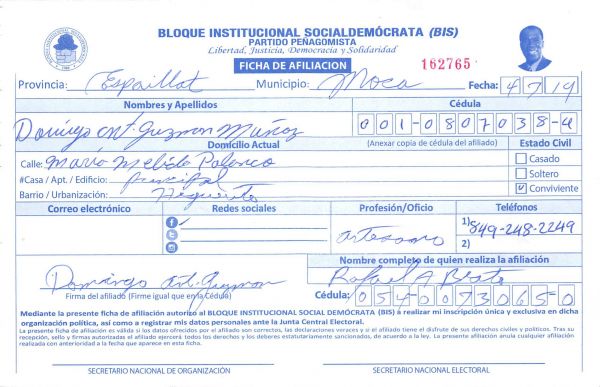 BLOQUE INSTITUCIONAL SOCIALDEMÓCRATA (BIS)
PARTIDO PEÑAGOMISTA
Libertad, Justicia, Democracia y Solidaridad
FICHA DE AFILIACION 162765
Provincia: Espaillat Municipio: Moca Fecha: 4/7/19
Nombres y Apellidos Cédula
Domingo Ant. Guzmon Muñoz 001-0807038-4
Domicilio Actual (Anexar copia de cédula del afiliado) Estado Civil
Calle: Mario Polanco Casado
#Casa / Apt. / Edificio: principal Soltero
Barrio / Urbanización: Conviviente
Correo electrónico Redes sociales Profesión/Oficio Teléfonos
1) 849-248-2249
artesano 2)
Nombre completo de quien realiza la afiliación
Domingo Ant. Guzmon Rafael A
Firma del afiliado (Firme igual que en la Cédula) Cédula: 054-0073065-0
Mediante la presente ficha de afiliación autorizo al BLOQUE INSTITUCIONAL SOCIAL DEMÓCRATA (BIS) a realizar mi inscripción única y exclusiva en dicha
organización política, así como a registrar mis datos personales ante la Junta Central Electoral.
La presente ficha de afiliación es válida si los datos ofrecidos por el afiliado son correctos, las declaraciones veraces y si el afiliado tiene el disfrute de sus derechos civiles y políticos. Tras su
recepción, sello y firmas autorizadas el afiliado ejercerá todos los derechos y los deberes estatutariamente sancionados, de acuerdo a la ley. La presente afiliación anula cualquier afiliación
realizada con anterioridad a la fecha que aparece en esta ficha.
SECRETARIO NACIONAL DE ORGANIZACIÓN SECRETARIO NACIONAL ELECTORAL